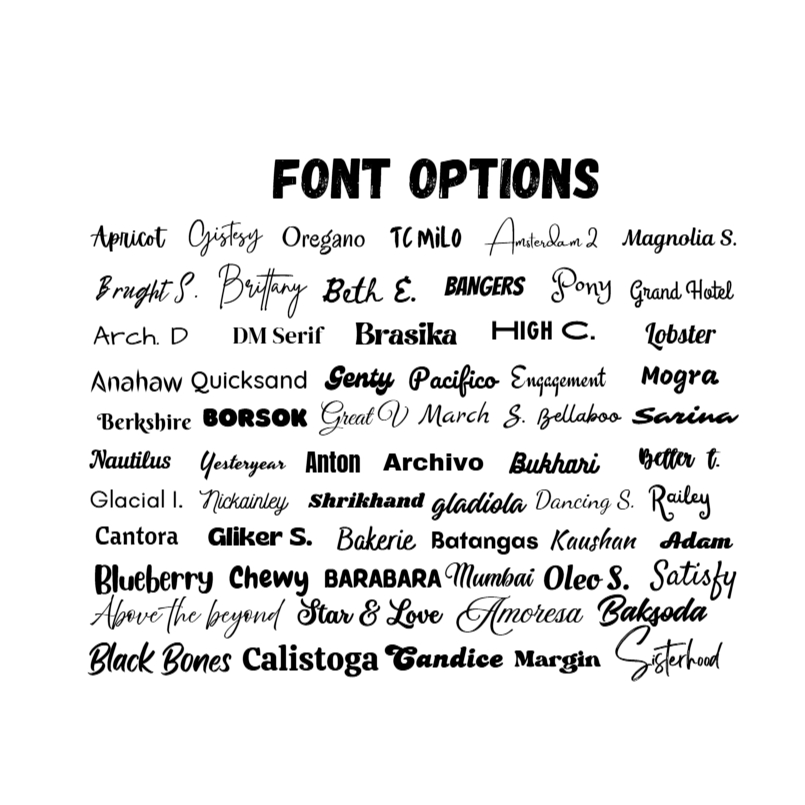 FONT OPTIONS
Apricot Gistesy Oregano TC MiLO Amsterdam 2 Magnolia S.
Brught S. Brittany Beth E. BANGERS Pony Grand Hotel
Arch. D DM Serif Brasika HIGH C. Lobster
Anahaw Quicksand Genty Pacifico Engagement Mogra
Berkshire BORSOK Great V March S. Bellaboo Sarina
Nautilus Yesteryear Anton Archivo Bukhari Better t.
Glacial I. Nickainley Shrikhand gladiola Dancing S. Railey
Cantora Gliker S. Bakerie Batangas Kaushan Adam
Blueberry Chewy BARABARA Mumbai Oleo S. Satisfy
Above the beyond Star & Love Amoresa Baksoda
Black Bones Calistoga Candice Margin Sisterhood